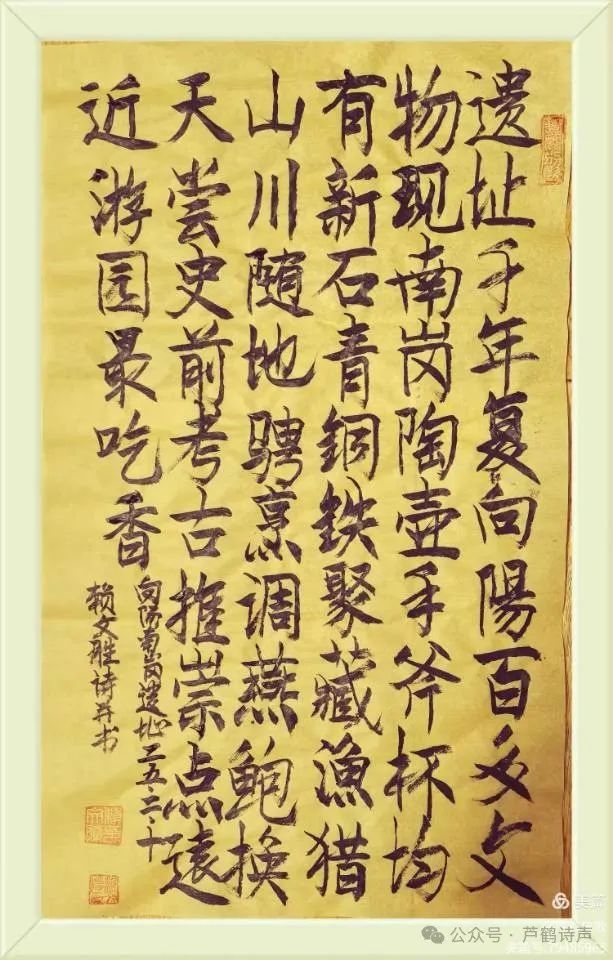 遗址千年复向陽百多文
物现南岗陶壶手斧杯均
有新石青铜铁聚藏漁猎
山川随地骋烹调燕鲍换
天尝史前考古推崇点遠
近游园最吃香
向陽南岗遗址二五.二.十
赖文胜诗并书
美篇
公众号 · 芦鹤诗声